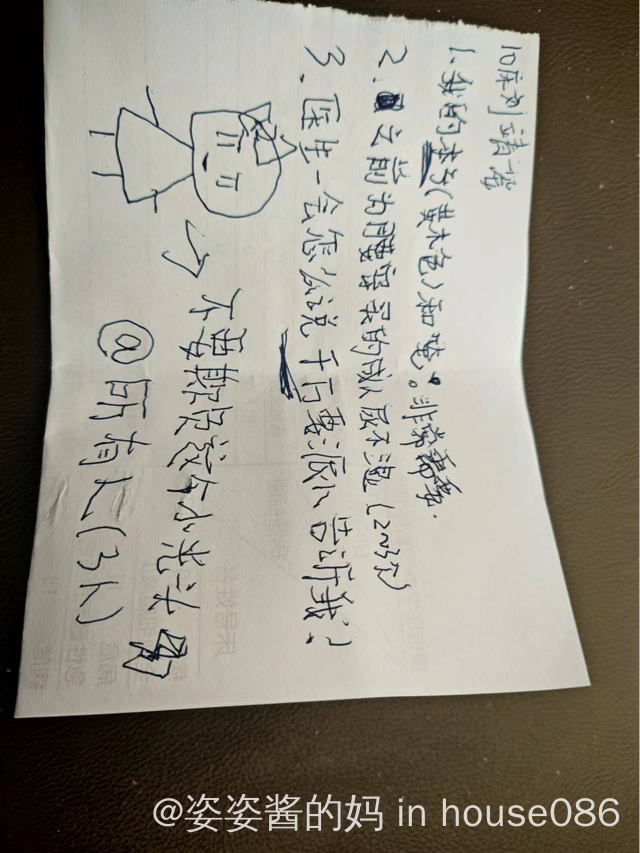 10床列请说
1.我的本子(黄木色)和笔。非常需要.
2.之前为腰穿买的成人尿不湿(2/3穿)
3.医生一会怎么说千万要派人告诉我?
不要欺负这个小光头
@所有人(3人)
@姿姿酱的妈 in house086